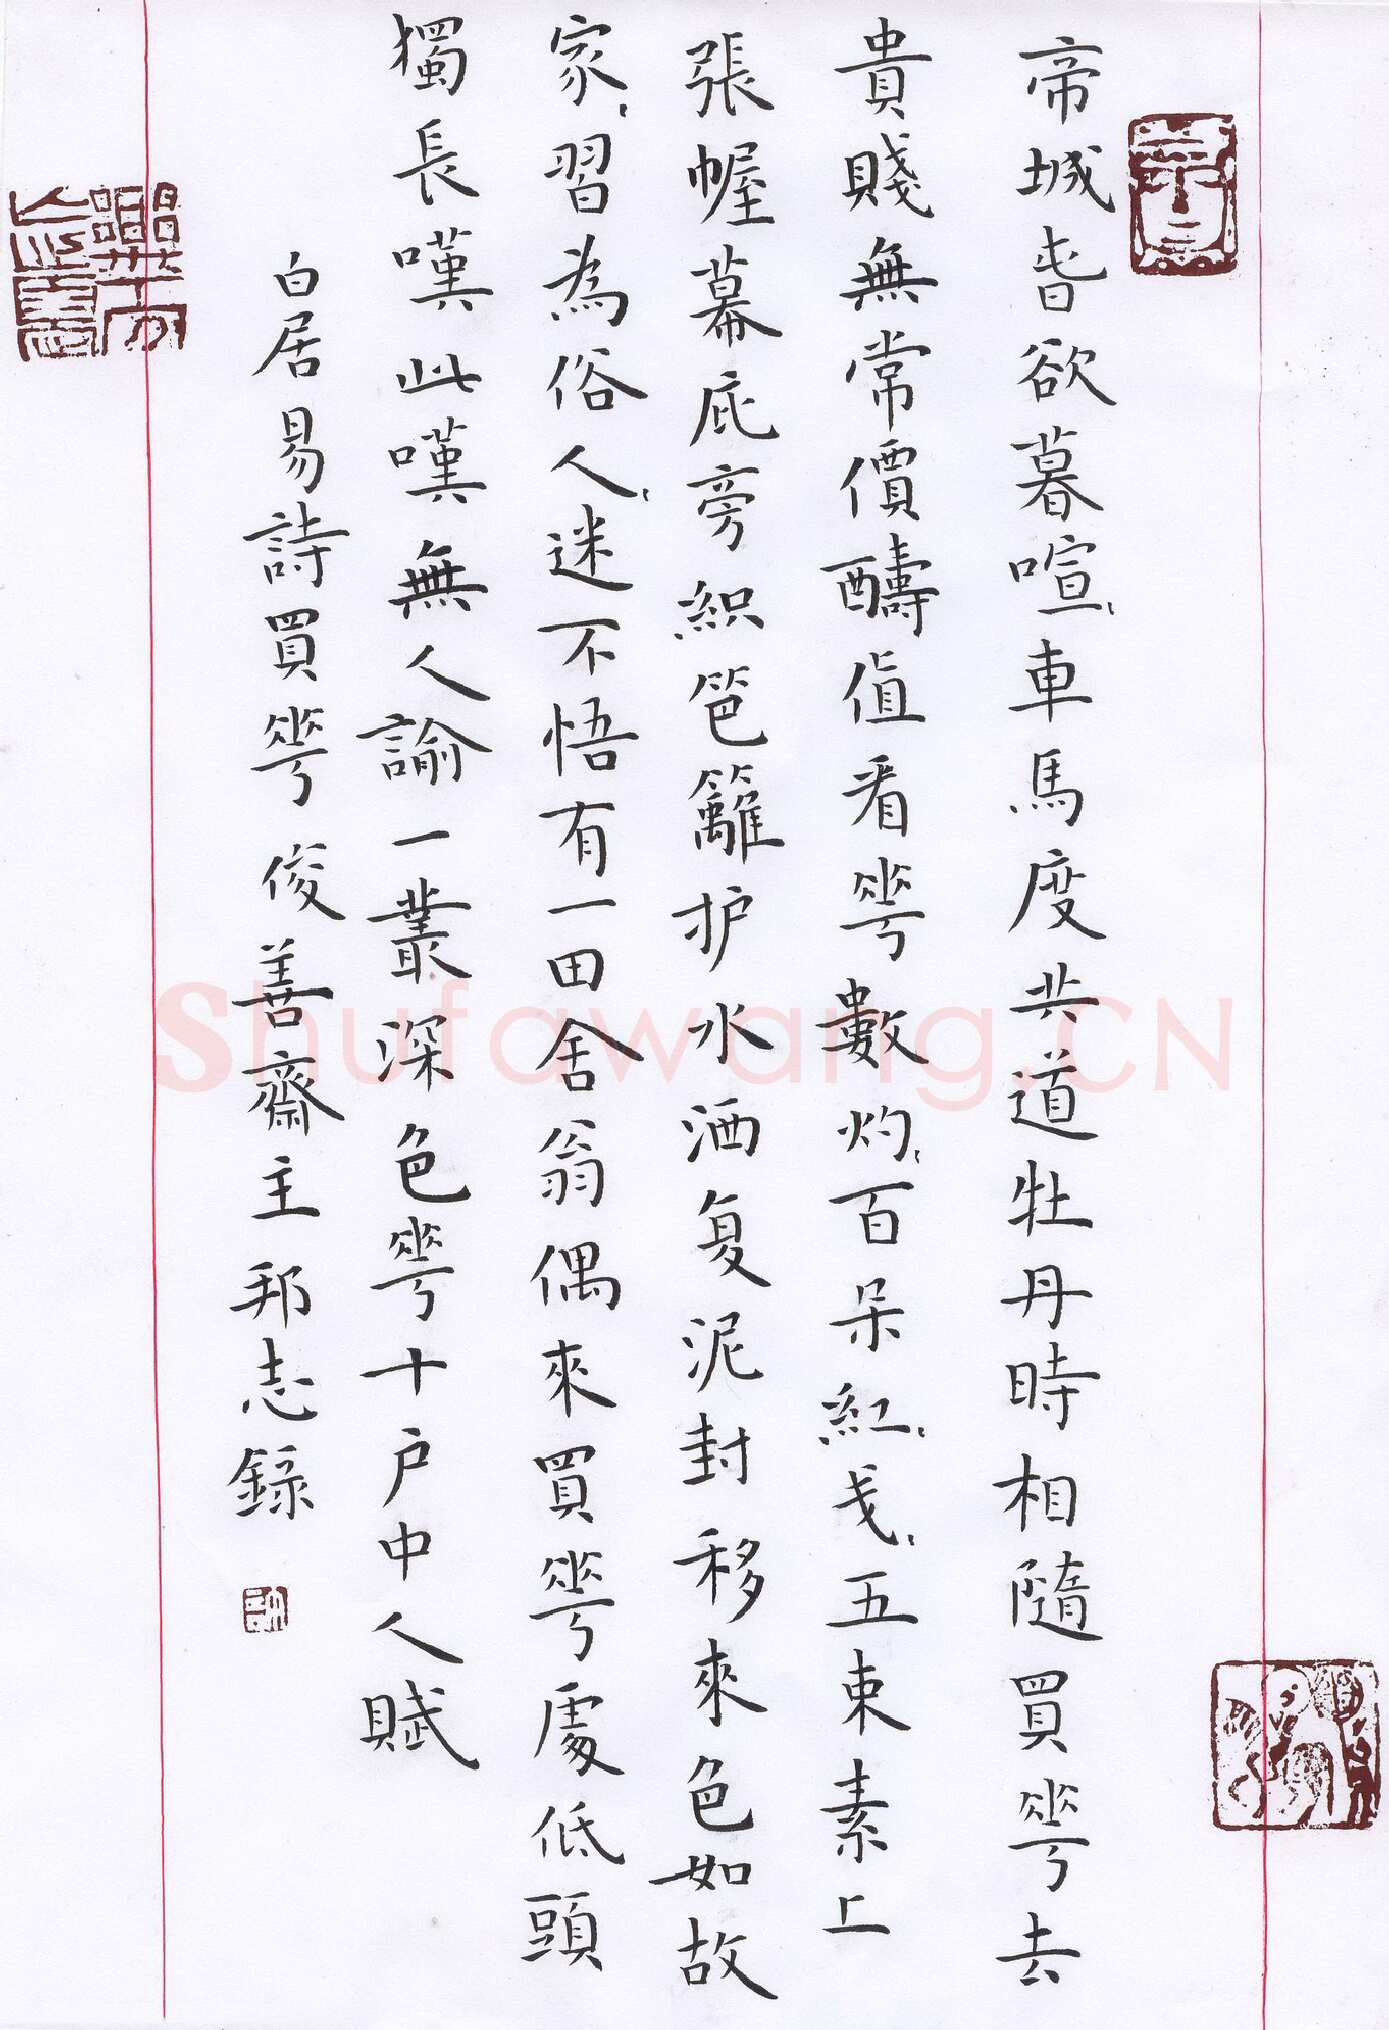 帝城旾欲暮喧〻車馬度共道牡丹時相隨買𠌶去
貴賤無常價醻值看𠌶數灼〻百朵紅〻戔〻五束素上
張幄幕庇旁織笆籬护水洒复泥封移來色如故
家〻習為俗人〻迷不悟有一田舍翁偶來買𠌶處低頭
獨長嘆此嘆無人諭一叢深色𠌶十户中人賦
白居易詩買𠌶俊善齋主邦志錄
Shufawang.CN